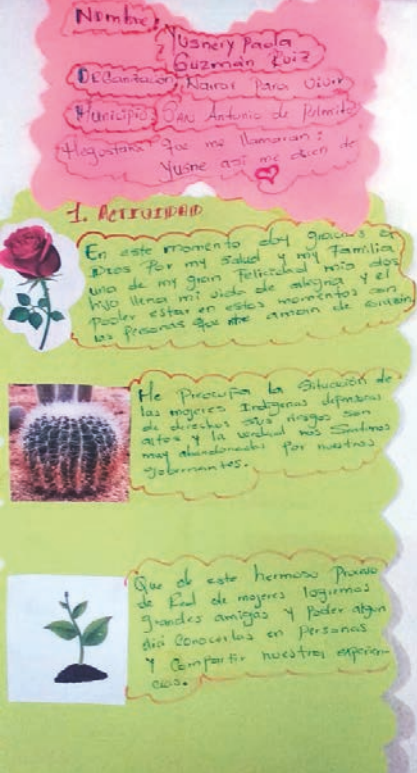 Nombre:
Yusnery Paola
Guzmán Ruiz
Organización: Narrar Para Vivir
Municipio: San Antonio de Palmito
Megustaria que me llamaran:
Yusne asi me dicen de
1. ACTIVIDAD
En este momento doy gracias a
Dios Por my salud y my Familia
una de my gran Felicidad mis dos
hijo llena mi vida de alegria y el
Poder estar en estos momentos con
las Personas que me aman de corazón
Me Preocupa la Situación de
las mojeres Indigenas defensoras
de derechos sus riesgos son
altos y la verdad nos Sentimos
muy abandonadas Por nuestros
gobernantes.
Que de este hermoso Proceso
de Red de mojeres logremos
grandes amigas y Poder algun
dia Conocerlas en Personas
Y Compartir nuestras experien-
cias.